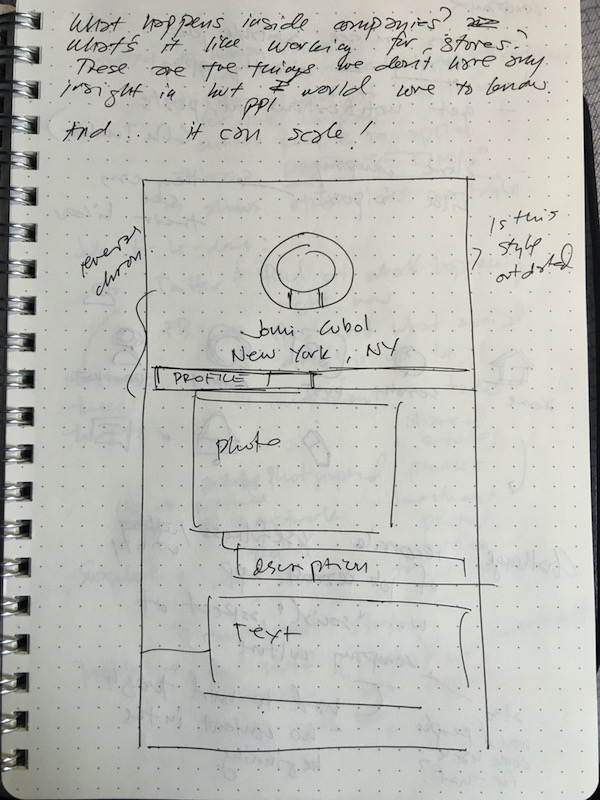 What happens inside companies?
What's it like working for stores?
These are the things we don't have any
insight in but I would love to know.
ppl
And... it can scale!
reverse
chron
Is this
style
outdated
Jomi Cubol
New York, NY
PROFILE
photo
Description
Text